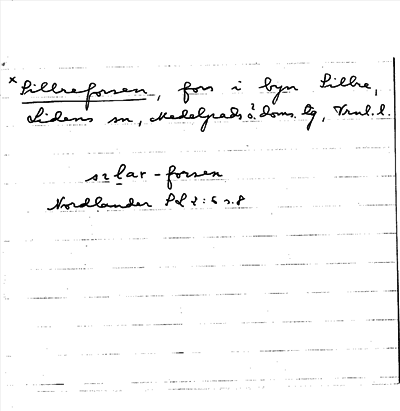 × Sillreforsen, fors i byn Sillre,
Lidens sn, Medelpads ö. doms. lg, Vrnl. l.
sılar - forsen
Nordlander NoB 2: s.8